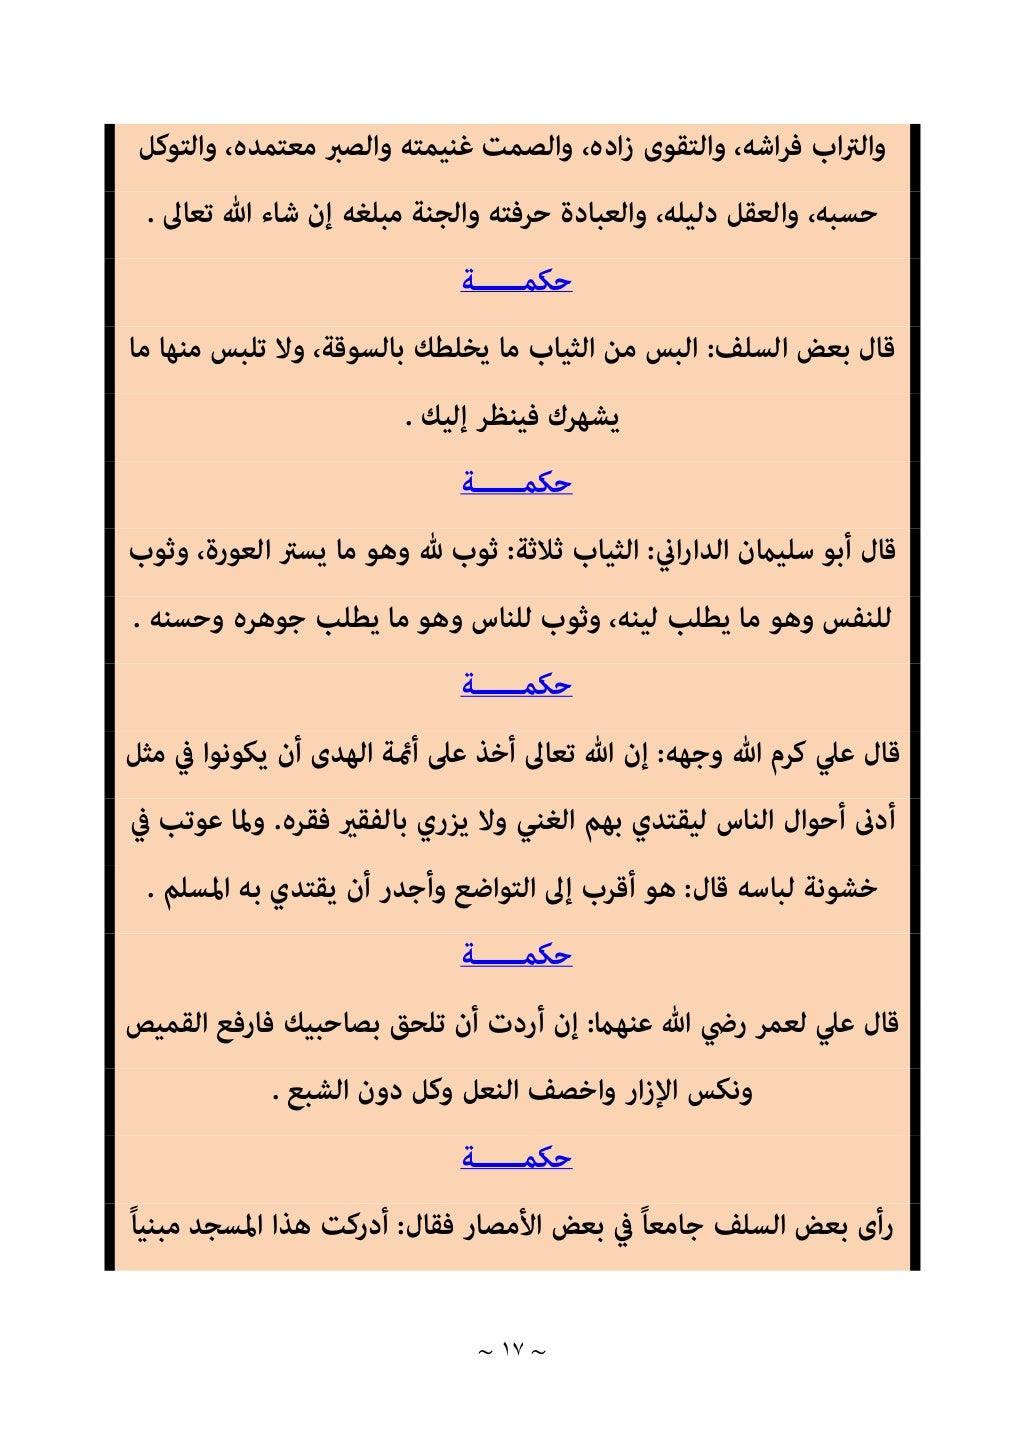 والتراب فراشه، والتقوى زاده، والصمت غنيمته والصبر معتمده، والتوكل
حسبه، والعقل دليله، والعبادة حرفته والجنة مبلغه إن شاء الله تعالى .
حكمـــــــة
قال بعض السلف: البس من الثياب ما يخلطك بالسوقة، ولا تلبس منها ما
يشهرك فينظر إليك .
حكمـــــــة
قال أبو سليمان الداراني: الثياب ثلاثة: ثوب لله وهو ما يستر العورة، وثوب
للنفس وهو ما يطلب لينه، وثوب للناس وهو ما يطلب جوهره وحسنه .
حكمـــــــة
قال علي كرم الله وجهه: إن الله تعالى أخذ على أئمة الهدى أن يكونوا في مثل
أدنى أحوال الناس ليقتدي بهم الغني ولا يزري بالفقير فقره. ولما عوتب في
خشونة لباسه قال: هو أقرب إلى التواضع وأجدر أن يقتدي به المسلم .
حكمـــــــة
قال علي لعمر رضي الله عنهما: إن أردت أن تلحق بصاحبيك فارفع القميص
ونكس الإزار واخصف النعل وكل دون الشبع .
حكمـــــــة
رأى بعض السلف جامعاً في بعض الأمصار فقال: أدركت هذا المسجد مبنياً
~ ١٧ ~